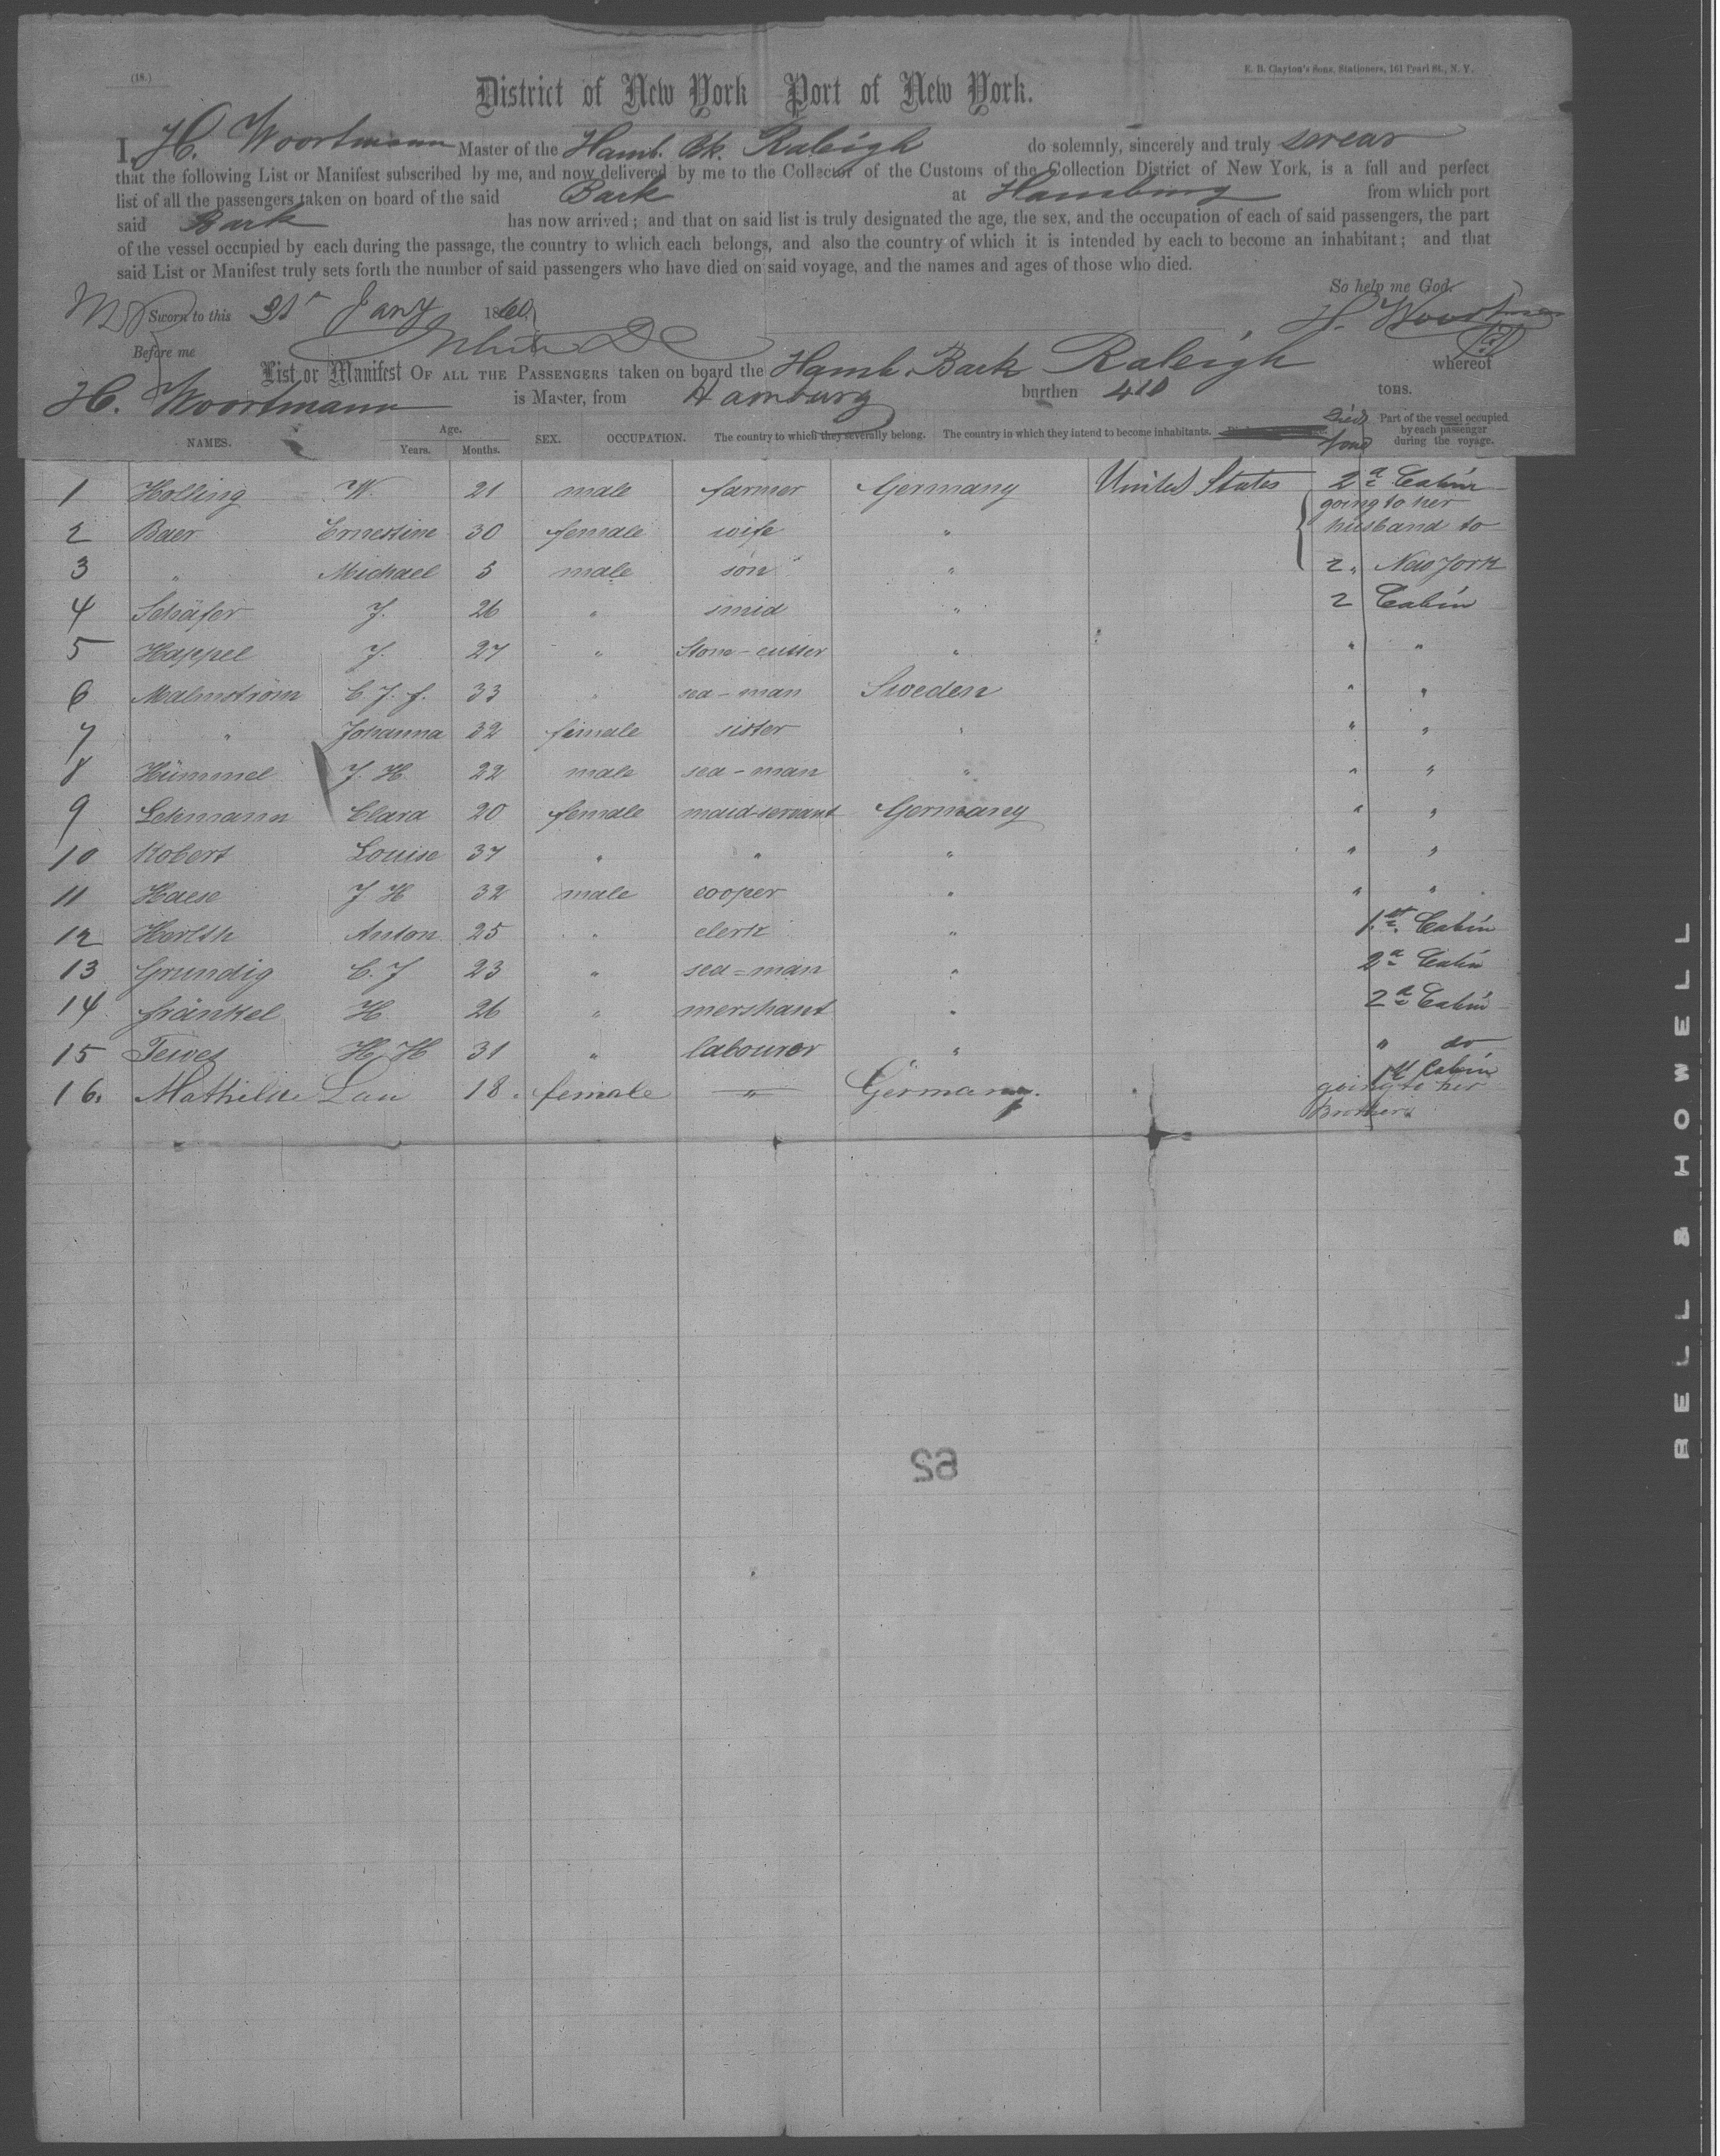 (18.)
E. B. Clayton's Sons, Stationers, 161 Pearl St., N. Y.
District of New York Port of New York.
I, H. Woortmann Master of the Hamb. Bk. Raleigh do solemnly, sincerely and truly swear
that the following List or Manifest subscribed by me, and now delivered by me to the Collector of the Customs of the Collection District of New York, is a full and perfect
list of all the passengers taken on board of the said Bark at Hamburg from which port
said Bark has now arrived; and that on said list is truly designated the age, the sex, and the occupation of each of said passengers, the part
of the vessel occupied by each during the passage, the country to which each belongs, and also the country of which it is intended by each to become an inhabitant; and that
said List or Manifest truly sets forth the number of said passengers who have died on said voyage, and the names and ages of those who died.
So help me God.
Sworn to this 31st Jany 1860 H. Woortmann
Before me
List or Manifest OF ALL THE PASSENGERS taken on board the Hamb. Bark Raleigh whereof
H. Woortmann is Master, from Hamburg burthen 410 tons.
NAMES. Age. Years. Months. SEX. OCCUPATION. The country to which they severally belong. The country in which they intend to become inhabitants. Died None Part of the vessel occupied by each passenger during the voyage.
1 Holling W. 21 male farmer Germany United States 2d Cabin
2 Baer Ernestine 30 female wife " going to her husband to
3 " Michael 5 male son " 2 " New York
4 Schäfer J. 26 " smid " 2 Cabin
5 Happel J. 27 " Stone-cutter " " "
6 Malmström C. J. f. 33 " sea-man Sweden " "
7 " Johanna 32 female sister " " "
8 Hümmel J. H. 22 male sea-man " " "
9 Lehmann Clara 20 female maid-servant Germany " "
10 Robert Louise 37 " " " " "
11 Haese J. H 32 male cooper " " "
12 Anton 25 " clerk " 1st Cabin
13 Grundig C. J 23 " sea=man " 2d Cabin
14 fränkel H 26 " mershant " 2d Cabin
15 Tewes H. H 31 " labourer " " do
16. Mathilde Lau 18. female " Germany. 1st Cabin
going to her
Brother
62
BELL & HOWELL